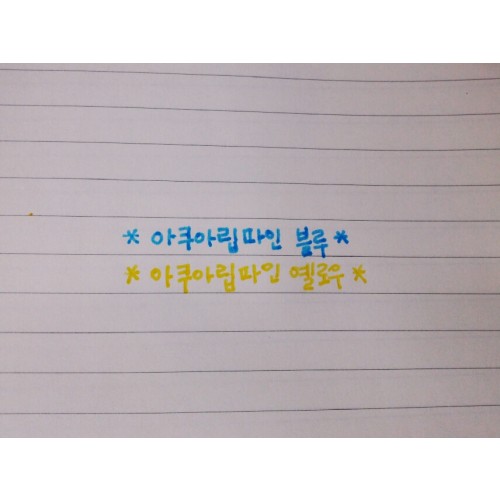 * 아쿠아립파인 블루 *
* 아쿠아립파인 옐로우 *